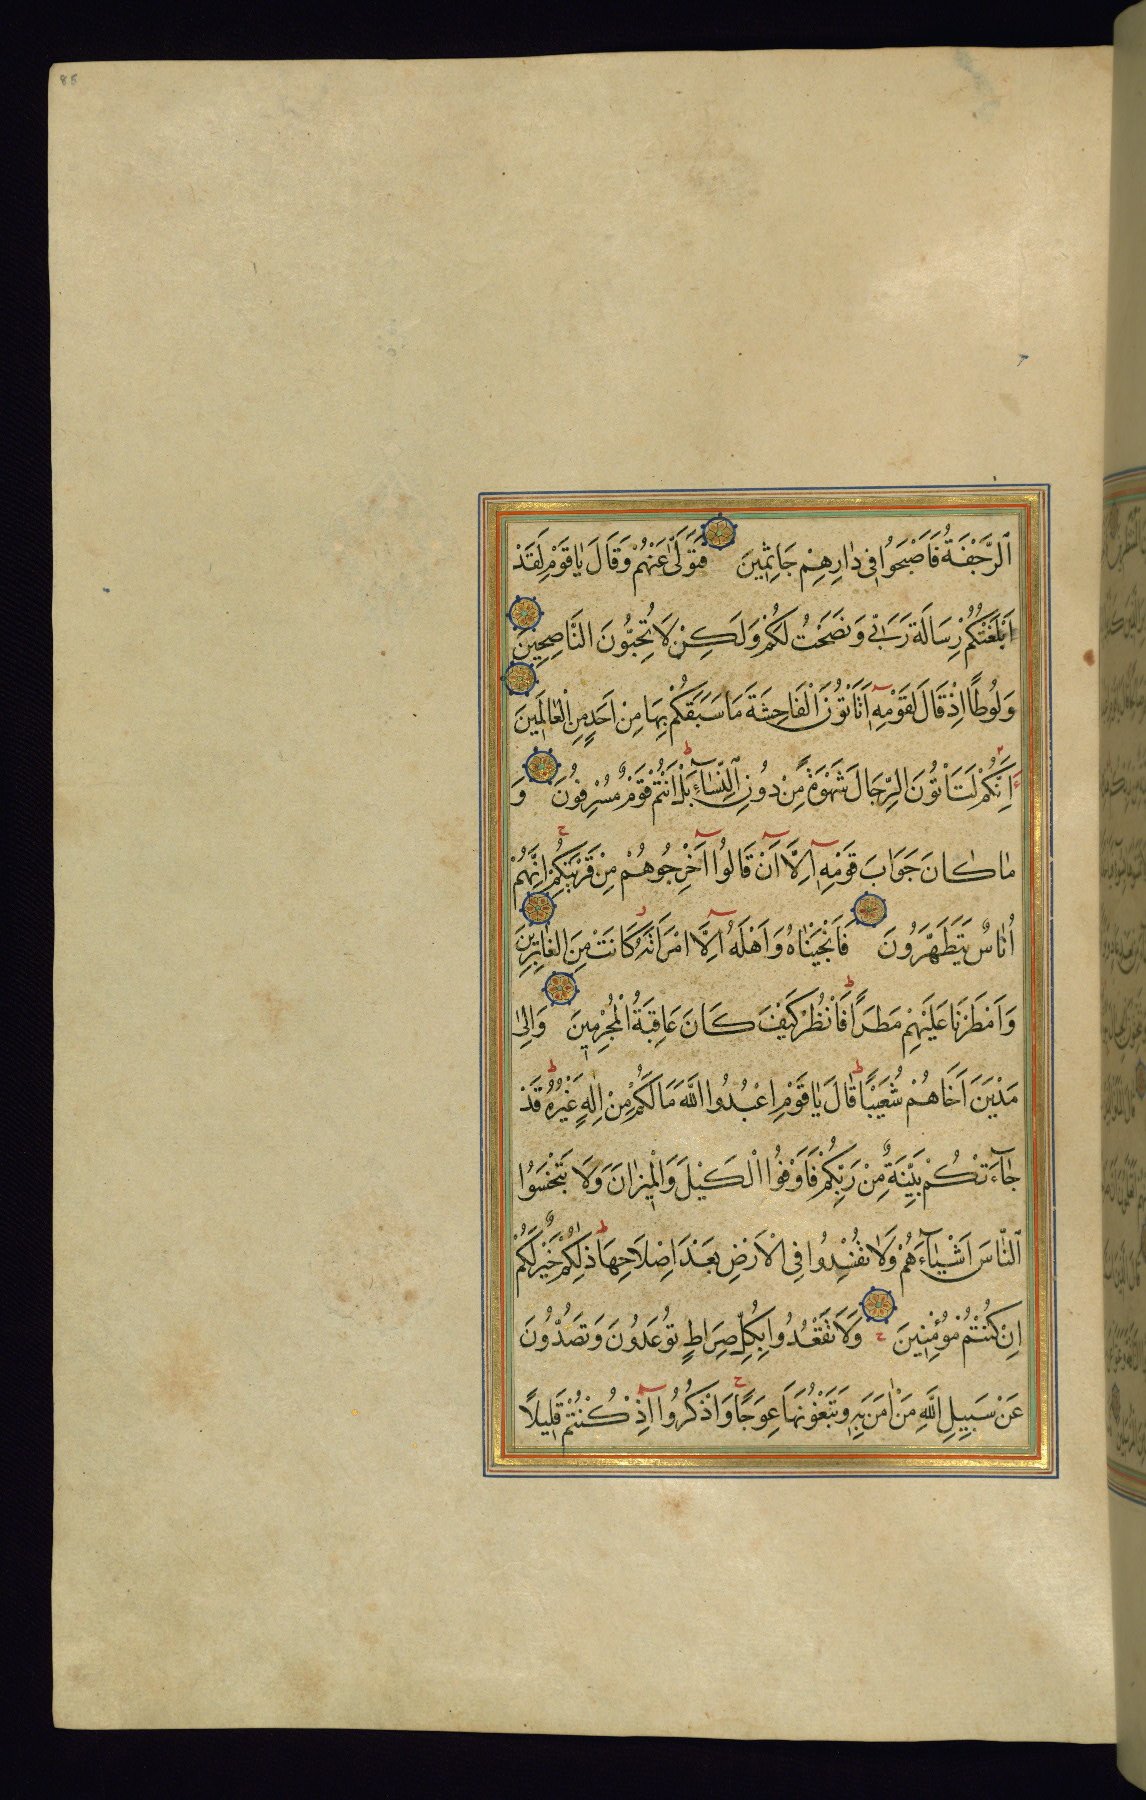 اَلرَّجْفَةُ فَاَصْبَحُوا فِى دَارِهِمْ جَاثِمِينَ فَتَوَلّٰى عَنْهُمْ وَقَالَ يَاقَوْمِ لَقَدْ
اَبْلَغْتُكُمْ رِسَالَةَ رَبّٖى وَنَصَحْتُ لَكُمْ وَلَكِنْ لَا تُحِبُّونَ النَّاصِحِينَ
وَلُوطًا اِذْ قَالَ لِقَوْمِهٖٓ اَتَاْتُونَ الْفَاحِشَةَ مَا سَبَقَكُمْ بِهَا مِنْ اَحَدٍ مِنَ الْعَالَمِينَ
اِنَّكُمْ لَتَاْتُونَ الرِّجَالَ شَهْوَةً مِنْ دُونِ اَلنِّسَٓاءِ بَلْ اَنْتُمْ قَوْمٌ مُسْرِفُونَ وَ
مَا كَانَ جَوَابَ قَوْمِهٖٓ اِلَّٓا اَنْ قَالُوٓا اَخْرِجُوهُمْ مِنْ قَرْيَتِكُمْ اِنَّهُمْ
اُنَاسٌ يَتَطَهَّرُونَ فَاَنْجَيْنَاهُ وَاَهْلَهُٓ اِلَّا امْرَاَتَهُ كَانَتْ مِنَ الْغَابِرِينَ
وَاَمْطَرْنَا عَلَيْهِمْ مَطَرًا فَانْظُرْ كَيْفَ كَانَ عَاقِبَةُ الْمُجْرِمِينَ وَاِلٰى
مَدْيَنَ اَخَاهُمْ شُعَيْبًا قَالَ يَاقَوْمِ اعْبُدُوا اللَّهَ مَا لَكُمْ مِنْ اِلٰهٍ غَيْرُهُ قَدْ
جَٓاءَتْكُمْ بَيِّنَةٌ مِنْ رَبِّكُمْ فَاَوْفُوا الْكَيْلَ وَالْمِيزَانَ وَلَا تَبْخَسُوا
اَلنَّاسَ اَشْيَٓاءَهُمْ وَلَا تُفْسِدُوا فِى الْاَرْضِ بَعْدَ اِصْلَاحِهَا ذٰلِكُمْ خَيْرٌ لَكُمْ
اِنْ كُنْتُمْ مُؤْمِنِينَ وَلَا تَقْعُدُوا بِكُلِّ صِرَاطٍ تُوعَدُونَ وَتَصُدُّونَ
عَنْ سَبِيلِ اللَّهِ مَنْ اٰمَنَ بِهٖ وَتَبْغُونَهَا عِوَجًا وَاذْكُرُوٓا اِذْ كُنْتُمْ قَلِيلًا